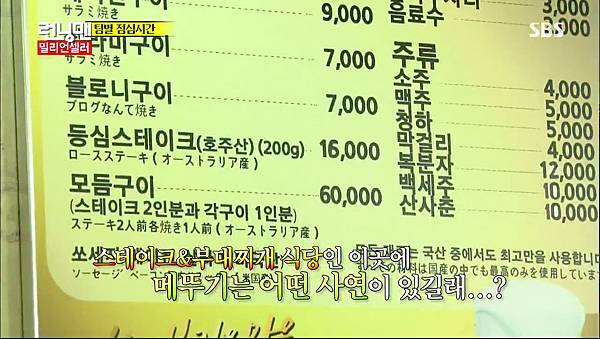 런닝맨
밀리언셀러
팀별 점심시간
SBS
9,000
サラミ焼き
라미구이 7,000
サラミ焼き
블로니구이 7,000
ブログなんて焼き
등심스테이크(호주산) (200g) 16,000
ロースステーキ ( オーストラリア産 )
모듬구이 60,000
(스테이크 2인분과 각구이 1인분)
ステーキ2人前各焼き1人前 ( オーストラリア産 )
음료수 3,000
주류
소주 4,000
맥주 4,000
청하 5,000
막걸리 4,000
복분자 12,000
백세주 10,000
산사춘 10,000
국산 중에서도 최고만을 사용합니다
料は国産の中でも最高のみを使用しています
쏘세
ソーセージ
스테이크&부대찌개 식당인 이곳에
메뚜기는 어떤 사연이 있길래...?